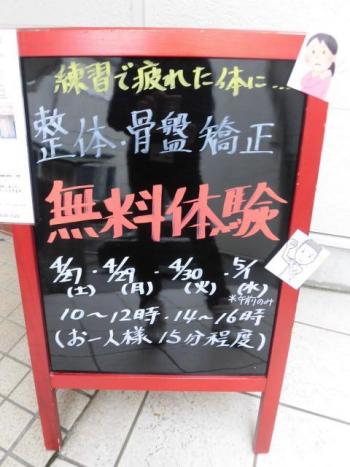 練習で疲れた体に…
整体・骨盤矯正
無料体験
4/27・4/29・4/30・5/1
(土) (月) (火) (水)
*午前のみ
10～12時・14～16時
(お一人様15分程度)